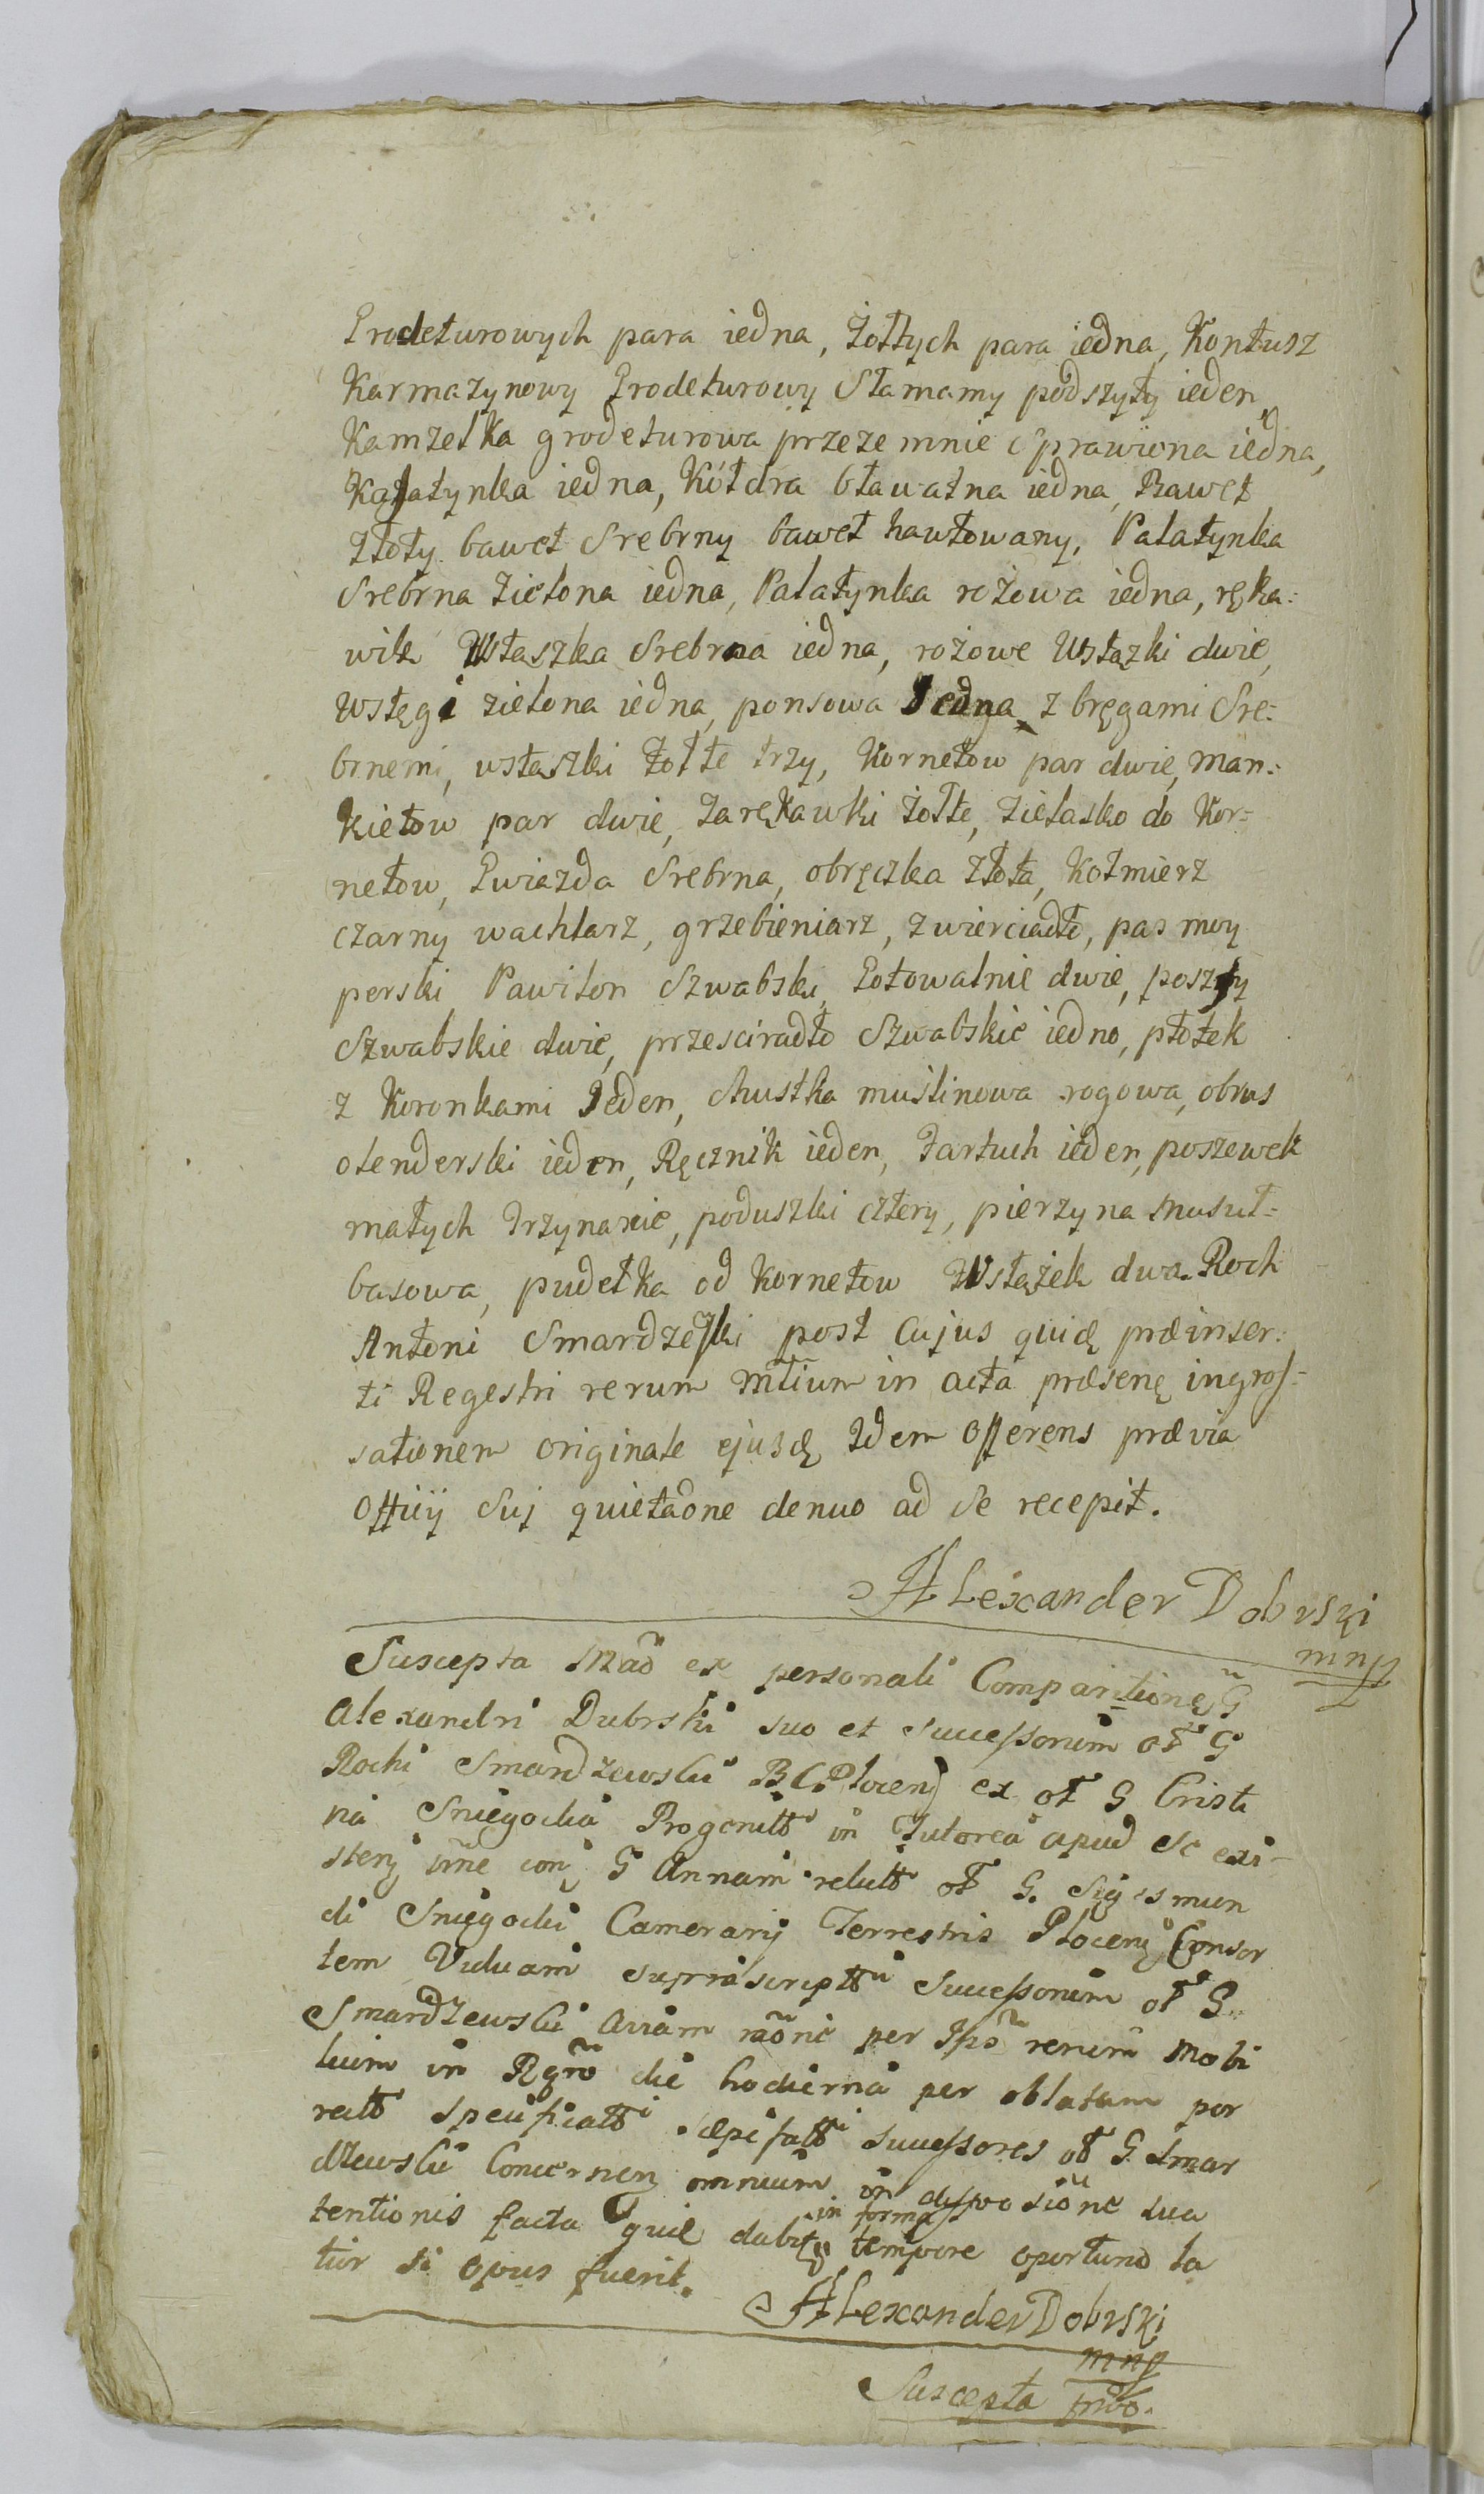 Grodeturowych para iedna, żołtych para iedna, Kontusz
Karmazynowy Grodeturowy Słamamy podszyty ieden,
Kamzelka grodeturowa przeze mnie sprawiona iedna,
Kaſatynka iedna, Kółdra bławatna iedna, Bawet
złoty bawet Srebrny bawet hawtowany, Palatynka
Srebrna zielona iedna, Palatynka rożowa iedna, ręka=
wik Wstaszka Srebrna iedna, rożowe Wstązki dwie,
wstęgi zielona iedna, ponsowa Jedna z bręgami Sre=
brnemi, wstaszki żołte trzy, Kornetow par dwie, man=
kietow par dwie, zarękawki żołte, żelasko do Kor=
netow, Gwiazda Srebrna, obręczka złota, Kołmierz
czarny wachlarz, grzebieniarz, zwierciadło, pas moy
perski Pawilon Szwabski, Gotowalnie dwie, poszwy
Szwabskie dwie, przescieradło Szwabskie iedno, płotek
z Koronkami Jeden, chustka muslinowa rogowa, obrus
olenderski ieden, Ręcznik ieden, Fartuch ieden, poszewek
małych trzynascie, poduszki cztery, pierzyna musuł=
basowa, pudełka od Kornetow Wstążek dwa. Roch
Antoni Smardzeſki post Cujus quidę præinser=
ti Regestri rerum mſtium in acta præsenę ingroſ=
sationem originale ejusdę Idem Offerens prævia
Officij Suj quietãone denuo ad Se recepit.
Alexander Dobrski
mnp
Suscepta Mão ex personali Comparitione G
Alexandri Dubrski suo et Sucessorum ol G
Rochi Smardzewski B C Plocenſ ex ol G Cristi
na Sniegocka Progenitt in Tutorea apud Se exi-
stenſ ime conſ G Annam relictt ol G. Sigismun
di Sniegocki Camerarij Terrestris Plocenſ Consor
tem Viduam suprascriptt Sucessorum ol G
Smardzewski Aviam raõne per Ipō rerum Mobi
lium in Rgrō die hodierna per oblatam por
rectt Specificatt sæpefatt Sucessores ol G Smar
dzewski Concernenſ omnium in dispositione sua
tentionis facta quie dabitę in forma tempore oportuno la
tior si opus fuerit.
Alexander Dobrski
mnp
Suscepta